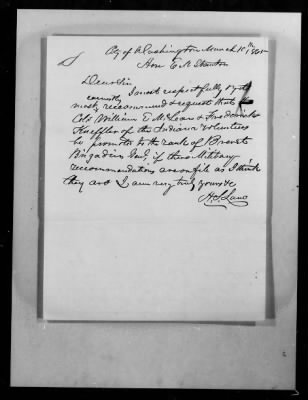 City of Washington March 15th 1865
Hon E M Stanton
Dear Sir
I most respectfully & yet
earnestly
most recommend & request that
Cols William E McLean & Frederick
Knefler of the Indiana Volunteers
be promoted to the rank of Brevet
Brigadier Genl, if there Military
recommendations are on file as I think
they are I am very truly yours &c
H S Lane